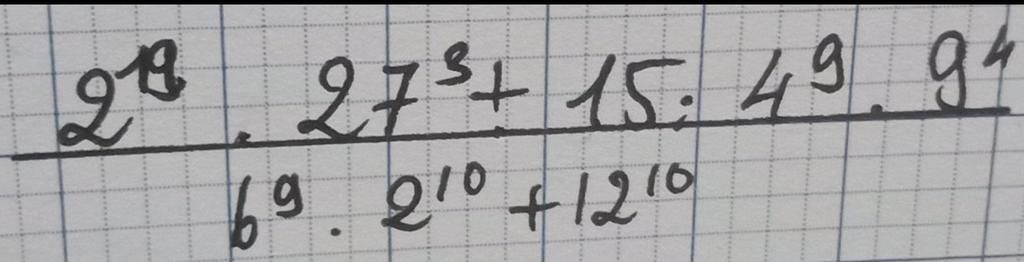 2¹⁹ . 27³ + 15 : 4⁹ . 9⁴
6⁹ . 2¹⁰ + 12¹⁰